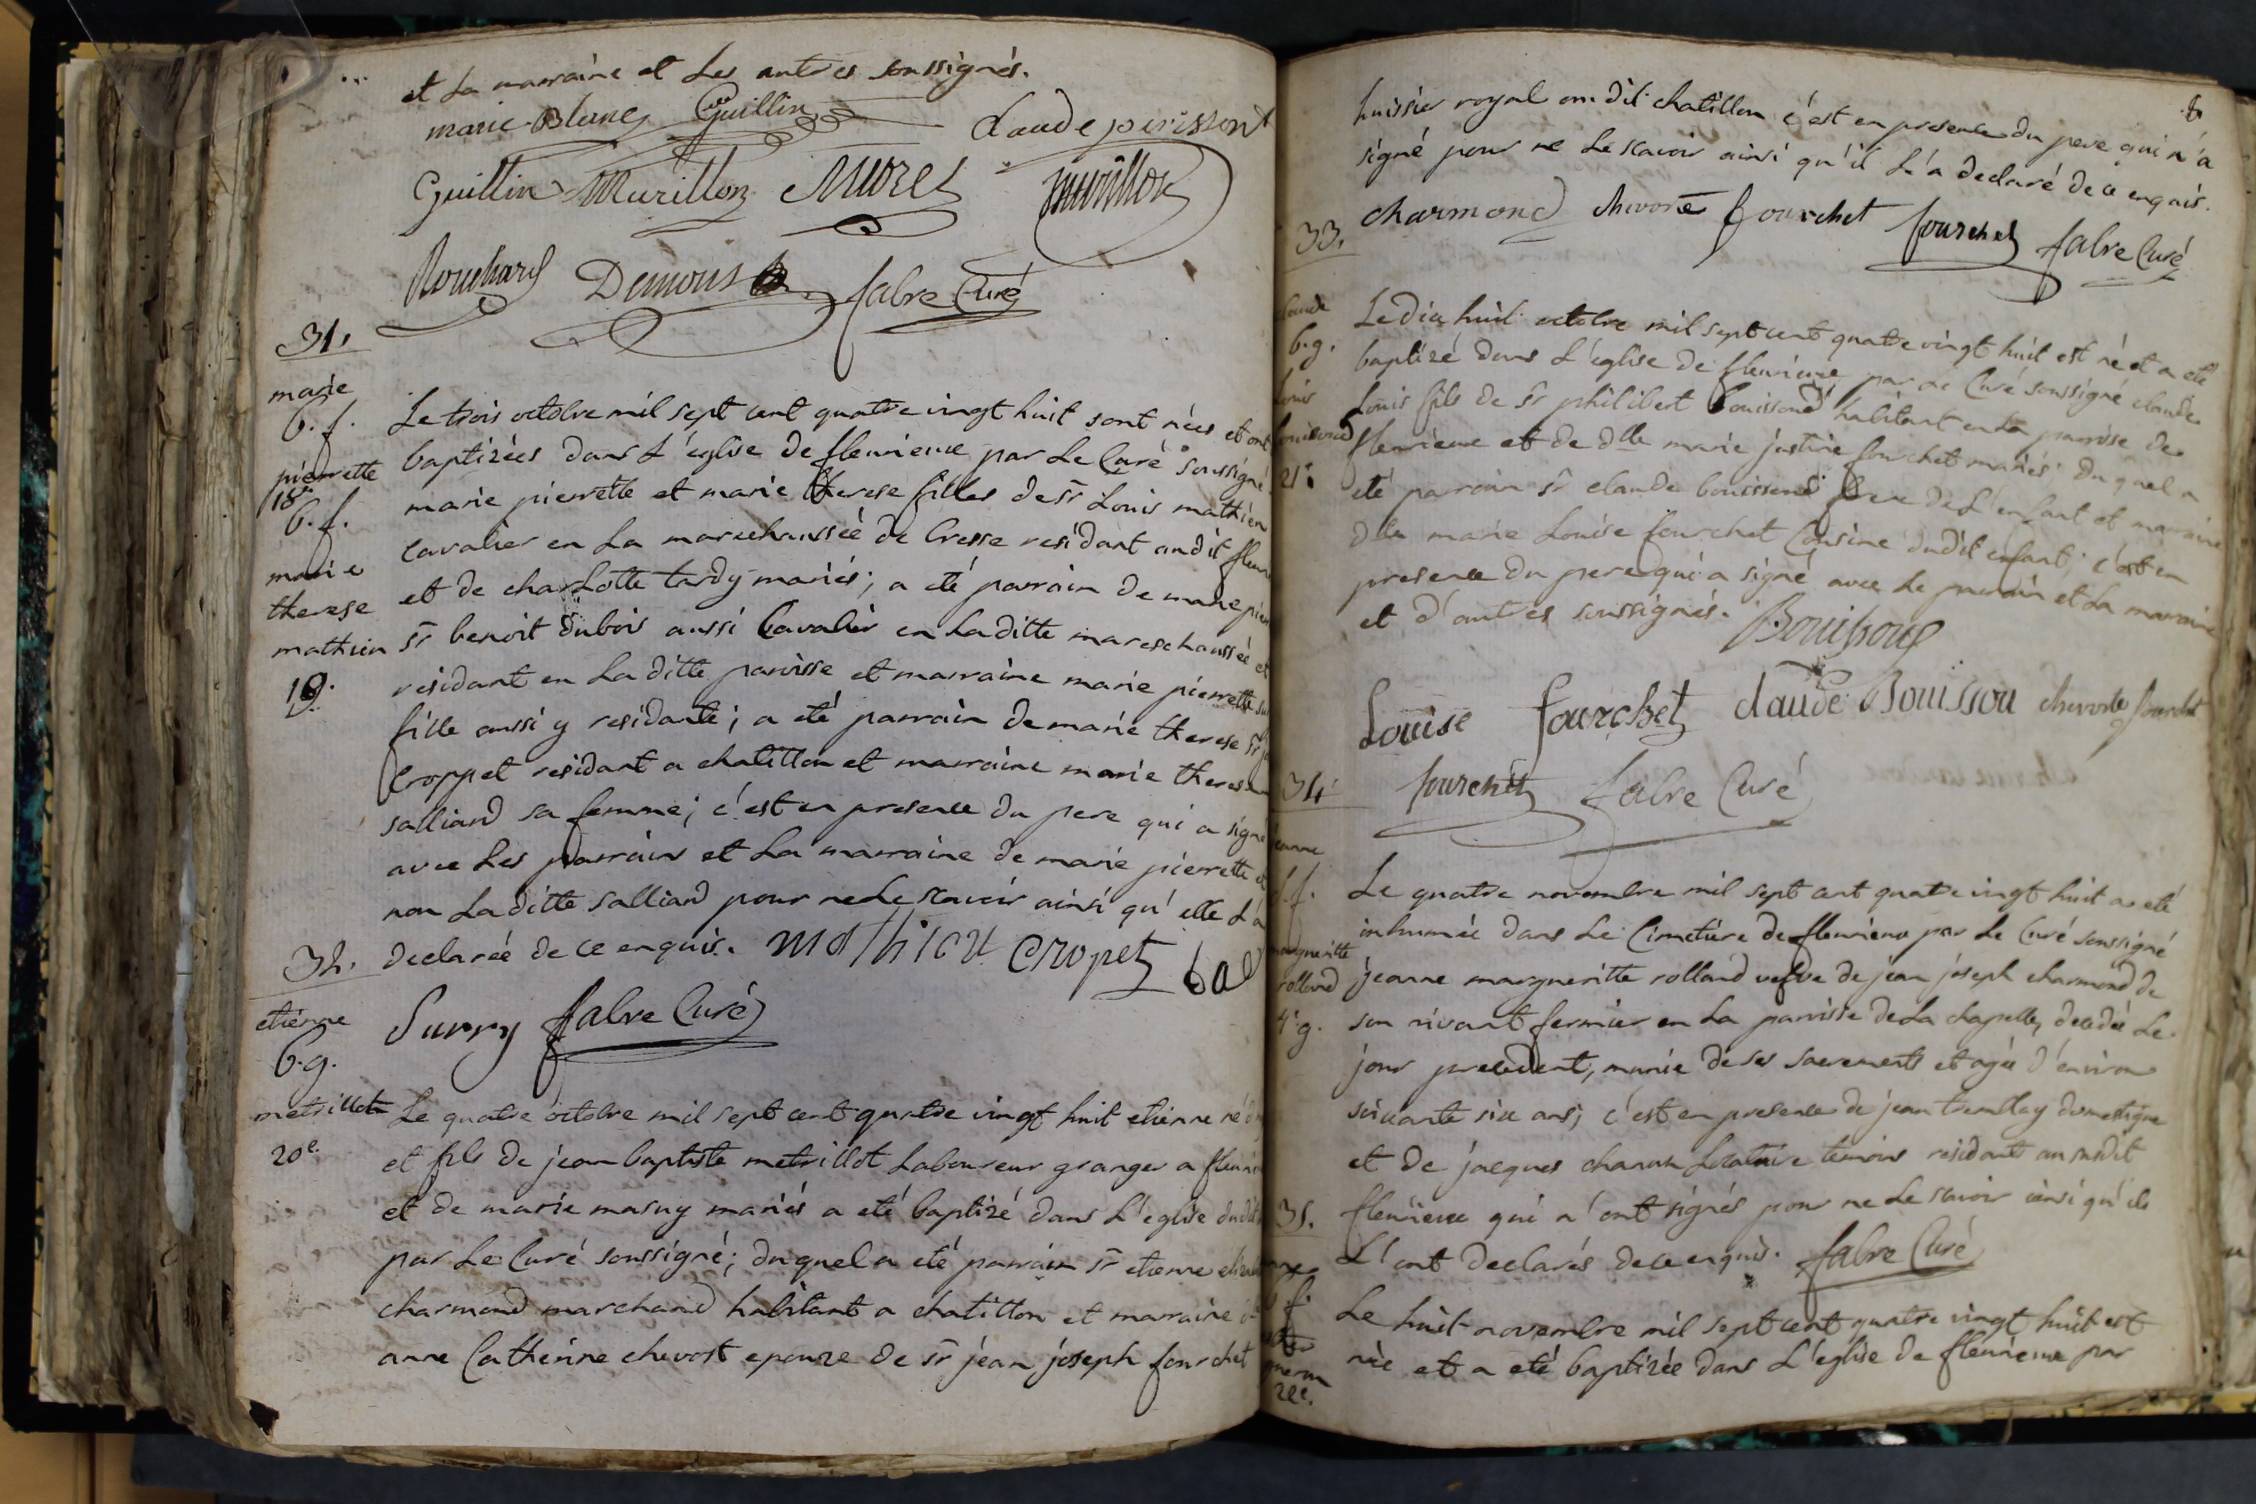 et La marraine et Les autres soussignés.
marie Blanc Guillin Claude perisson
Guillin Murillon Muret Murillon
Rouchard Demons fabre Curé
31.
marie
b. f.
pierrette
18e
b. f.
marie
therese
mathieu
19.
Le trois octobre mil sept cent quatre vingt huit sont nées et ont
baptizées dans L'église de fleurieux par Le Curé soussigné
marie pierrette et marie therese filles de sr Louis mathieu
Cavalier en La marechaussée de bresse residant audit fleur
et de charlotte tardy mariés; a eté parrain de marie pier
sr benoit dubois aussi Cavalier en La ditte mareschaussée et
residant en La ditte paroisse et marraine marie pierrette
fille aussi y residante; a eté parrain de marie therese sr
Croppet residant a chatillon et marraine marie therese
salliard sa femme; c'est en presence du pere qui a signé
avec Les parrains et La marraine de marie pierrette et
non La ditte salliard pour ne Le scavoir ainsi qu'elle L'a
declarée de ce enquis. mathieu Cropet
Surry fabre Curé
32.
etienne
b. g.
metrillot
20e.
Le quatre octobre mil sept cent quatre vingt huit etienne né
et fils de jean baptiste metrillot Laboureur granger a fleurieu
et de marie masuy mariés a eté baptizé dans L'eglise dudit
par Le Curé soussigné; duquel a eté parrain sr etienne
charmond marchand habitant a chatillon et marraine
anne Catherine chevost epouze de sr jean joseph fourchet
8
huissier royal audit chatillon c'est en presence du pere qui n'a
signé pour ne Le scavoir ainsi qu'il L'a declaré de ce enquis.
charmond fourchet fourchet fabre Curé
33.
Claude
b. g.
Louis
bouissoud
21e
Le dix huit octobre mil sept cent quatre vingt huit est né et a eté
baptizé dans L'église de fleurieux par Le Curé soussigné claude
Louis fils de sr philibert bouissoud habitant en La paroisse de
fleurieux et de dlle marie justine fourchet mariés; duquel a
eté parrain sr claude bouissoud frere de L'enfant et marraine
dlle marie Louise fourchet Cousine dudit enfant; c'est en
presence du pere qui a signé avec Le parrain et La marraine
et d'autres soussignés. Bouissoud
Louise fourchet claude Bouissou fourchet
fourchet fabre Curé
34
jeanne
f.
margueritte
rolland
4e g.
Le quatre novembre mil sept cent quatre vingt huit a eté
inhumée dans Le Cimetière de fleurieux par Le Curé soussigné
jeanne margueritte rolland vefve de jean joseph charmond de
son vivant fermier en La paroisse de La chapelle, decedée Le
jour precedent, munie de ses sacrements et agée d'environ
soixante six ans; c'est en presence de jean tremblay domestique
et de jacques Locataire temoins residant au susdit
fleurieux qui n'ont signés pour ne Le scavoir ainsi qu'ils
L'ont declarés de ce enquis. fabre Curé
35.
f.
22e.
Le huit novembre mil sept cent quatre vingt huit est
née et a eté baptizée dans L'église de fleurieux par